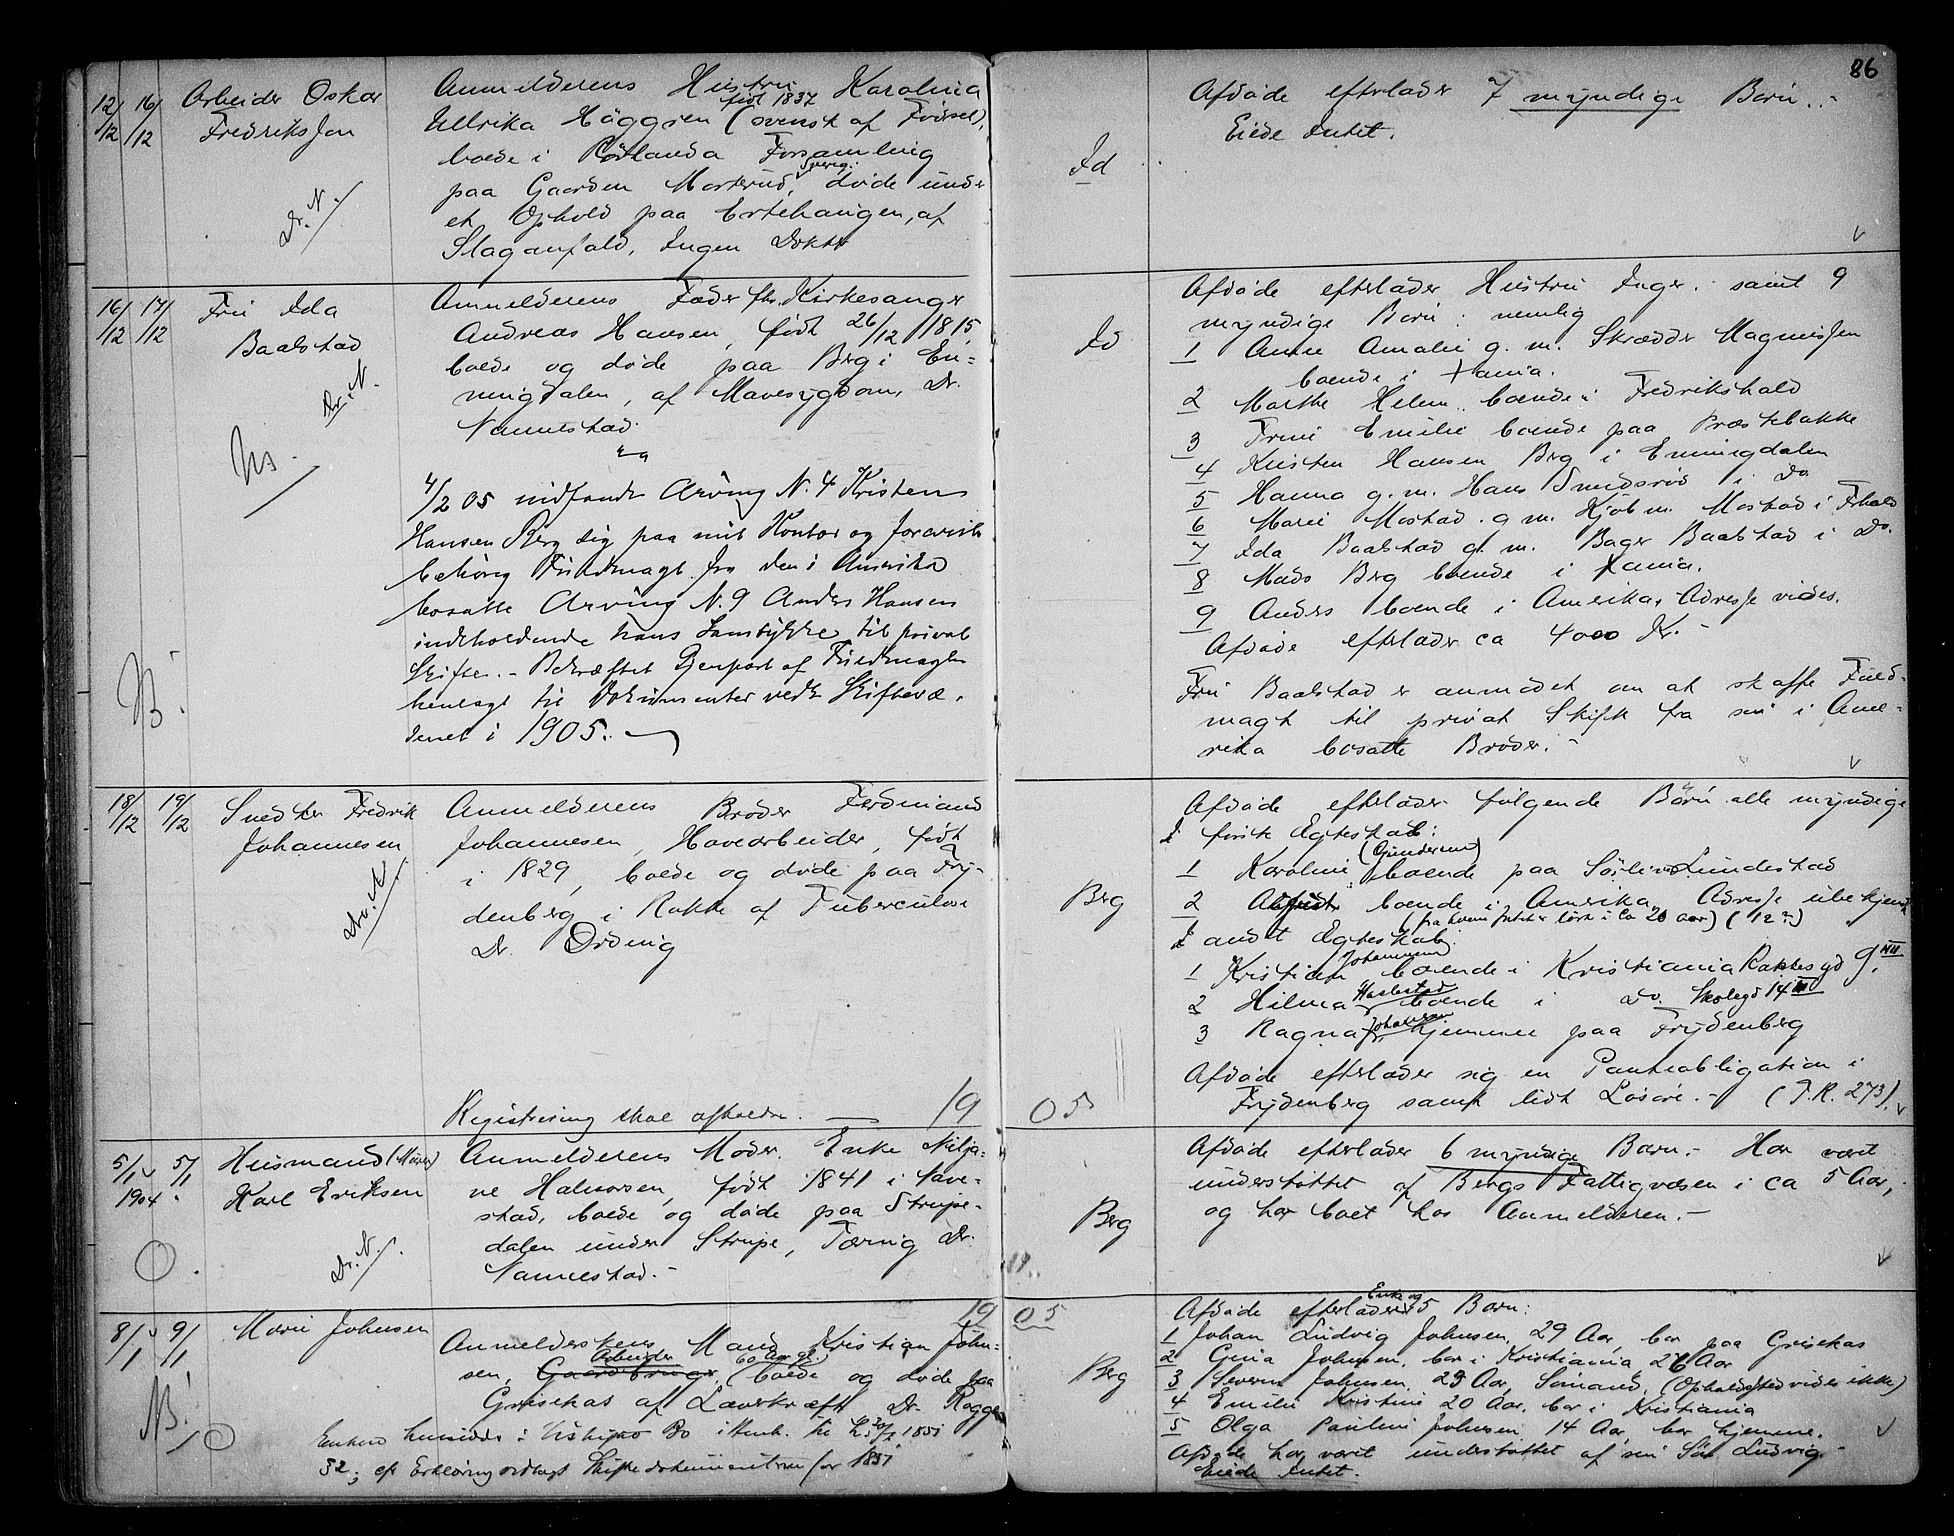 86
12/12 16/12 Arbeider Oskar Fredriksen
Dr. N.
Anmelderens Hustru Karolina
født 1837
Ullrika Häggren (svensk af Fødsel),
boede i Forsamling
paa Gaarden Morterud, Sverig, døde under
et Ophold paa Ertehaugen, af
Slaganfald, Ingen Doktor
Id
Afdøde efterlader 7 myndige Børn. -
Eiede Intet.
16/12 17/12 Fru Ida
Baalstad
Dr. N.
Anmelderens Fader fhv. Kirkesanger
Andreas Hansen, født 26/12 1815,
boede og døde paa Berg i En-
ningdalen, af Mavesygdom, Dr.
Nannestad.
4/2 05 indfandt Arving N. 4 Kristen
Hansen Berg sig paa mit Kontor og foreviste
behørig Fuldmagt fra den i Amerika
bosatte Arving N. 9 Anders Hansen
indeholdende hans Samtykke til privat
Skifte. - Bekræftet Gjenpart af Fuldmagten
henlagt til Dokumenter vedk. Skiftevæ-
denet i 1905. -
Id
Afdøde efterlader Hustru Inger samt 9
myndige Børn: nemlig
1 Anne Amalie g. m. Skrædder Magnussen
boende i Xania.
2 Marthe Helene boende i Fredrikshald
3 Emilie boende paa Præstebakke
4 Kristen Hansen Berg i Enningdalen
5 Hanna g. m. Hans Smedsrød i Do
6 Marie Mostad g. m. Kjøbm. Mostad i Fhald
7 Ida Baalstad g. m. Bager Baalstad i Do.
8 Mads Berg boende i Xania.
9 Anders boende i Amerika, Adresse vides.
Afdøde efterlader ca 4000 Kr. -
Fru Baalstad er anmodet om at skaffe Fuld-
magt til privat Skifte fra sin i Ame-
rika bosatte Broder. -
18/12 19/12 Snedker Fredrik
Johannesen
Dr. N.
Anmelderens Broder Ferdinand
Johannesen, Havearbeider, født
i 1829, boede og døde paa Fry-
denberg i Rakke af Tuberculose
Dr. Ording
Registrering skal afholdes. - 19
05
Berg
Afdøde efterlader følgende Børn alle myndige
I første Egteskab:
(Gundersen)
1 Karoline boende paa Lundestad
2 boende i Amerika, Adresse ubekjendt
(fra hvem intet er hørt i ca 20 aar) (12?)
I andet Egteskab:
Johannesen
1 Kristian boende i Kristiania Rakkesgd 9 III
Haslestad
2 Hilma boende i Do. Skolegd 14 III
Johannesen
3 Ragna, hjemme paa Frydenberg
Afdøde efterlader sig en Panteobligation i
Frydenberg samt lidt Løsøre. - (J. R. 273).
5/1 5/1 Husmand (Murer)
1904 Karl Eriksen
Dr. N.
Anmelderens Moder Enke Nilja-
ne Halvorsen, født 1841 i Tave-
stad, boede og døde paa Strupe-
dalen under Strupe, Tæring Dr.
Nannestad. -
Berg
Afdøde efterlader 6 myndige Børn. - Har været
understøttet af Bergs Fattigvæsen i ca 5 Aar,
og har boet hos Anmelderen. -
8/1 9/1 Marie Johnsen
19
05
Anmelderskens Mand Kristian John-
Arbeider 60 Aar gl.
sen, Gaardbruger, boede og døde paa
Grisekas af Leverkræft Dr. Rogge
52; cfr Erklæring vedlagt Skiftedokumenterne for
Berg
Enke og
Afdøde efterlader 5 Børn:
1 Johan Ludvig Johnsen, 29 Aar, bor paa Grisekas
2 Gina Johnsen, bor i Kristiania 26 Aar
3 Severin Johnsen, 23 Aar, Sømand, (Opholdssted vides ikke)
4 Emilie Kristine 20 Aar, bor i Kristiania
5 Olga Pauline Johnsen, 14 Aar, bor hjemme.
Afdøde har været understøttet af sin Søn Ludvig. -
Eiede Intet.